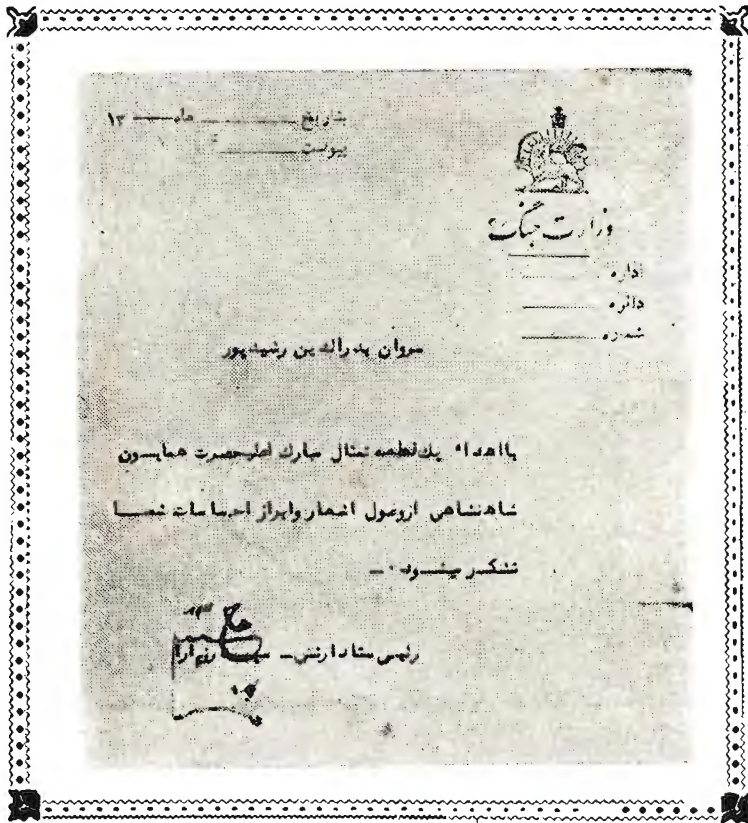 تاریخ ماه ۱۳
پیوست
وزارت جنگ
اداره
دائره
شماره
سروان بدرالدین رشیدپور
بااهداء یک قطعه تمثال مبارک اعلیحضرت همایون
شاهنشاهی ازوصول اشعار وابراز احساسات شما
تشکر میشود ۰ـ
رئیس ستاد ارتش ـ سپهبد رزم آرا